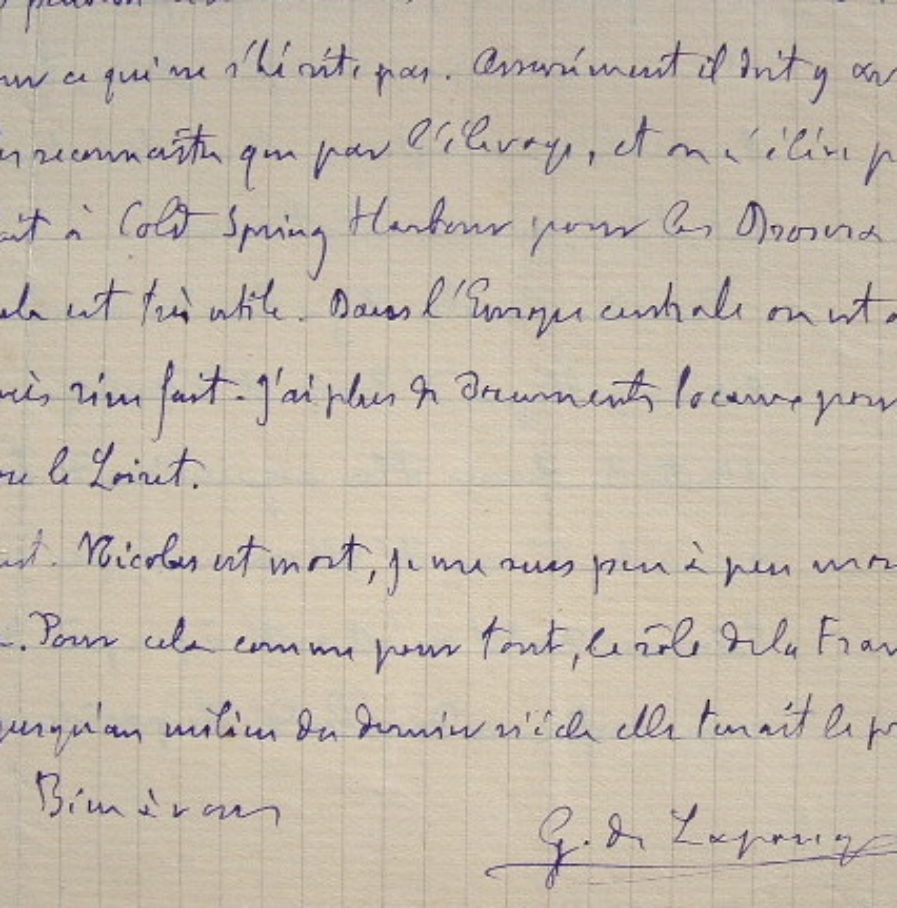 ce qui ne s'hérite pas. Assurément il doit y
reconnaître que par l'élevage, et on n'élève
à Cold Spring Harbour pour les Drosera
est très utile. Dans l'Europe centrale on est
rien fait. J'ai plus de documents locaux pour
le Loiret.
Nicolas est mort, je me suis peu à peu
Pour cela comme pour tout, le rôle de la Fran
jusqu'au milieu du dernier siècle elle tenait le
Bien à vous
G. de Lapouge